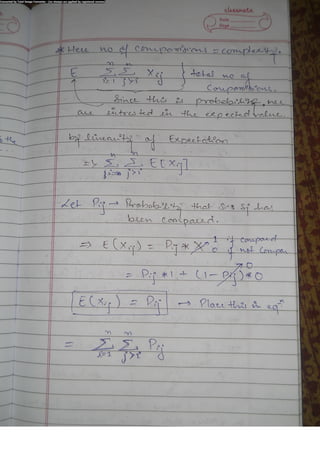 classmate
Date
Page
* Here no of comparisions = complexity.
E ∑ⁿᵢ₌₁ ∑ⁿⱼ>ᵢ Xij } total no of
Comparisions.
Since this is probability, we
are intrested in the expected value.
by linearity of Expectation
∑ⁿ ∑ⁿⱼ>ᵢ E[Xij]
Let Pij → Probability that Si & Sj has
been compared.
⇒ E(Xij) = Pij * X 1 if compared
0 if not compar
= Pij * 1 + (1 - Pij) * 0
0
E(Xij) = Pij → Place this in eqⁿ
= ∑ⁿᵢ₌₁ ∑ⁿⱼ>ᵢ Pij